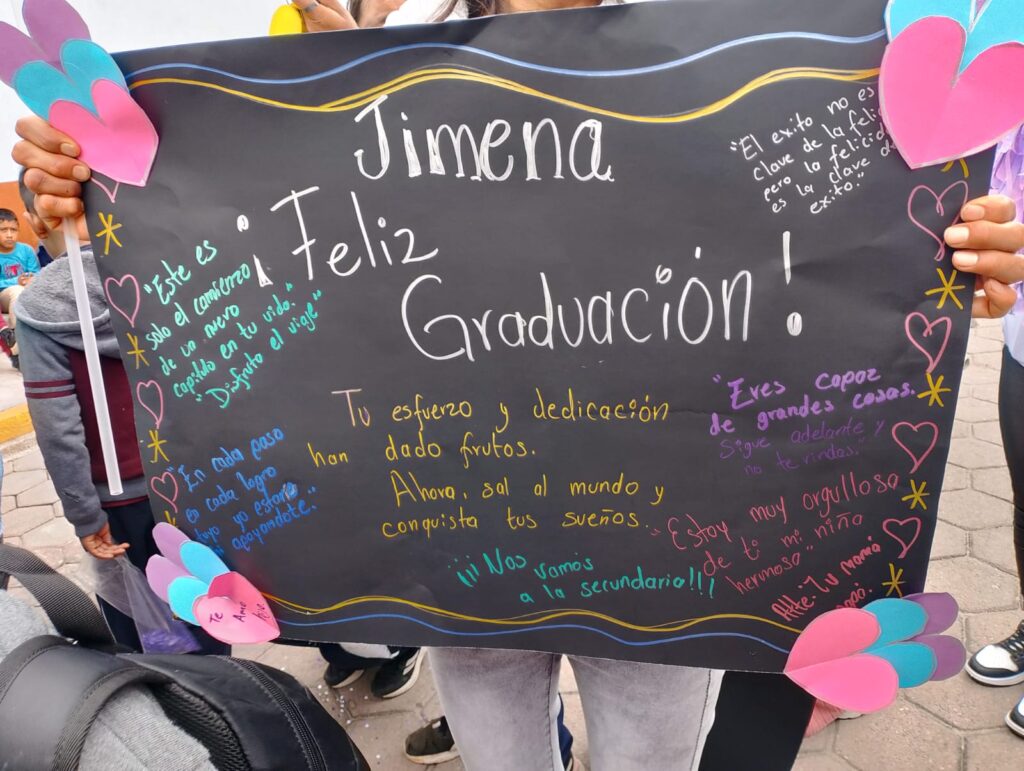 Jimena
¡Feliz
Graduación!
"El exito no es
clave de la felici
pero la felicid
es la clave de
exito."
"Este es
solo el comienzo
de un nuevo
capitulo en tu vida."
"Disfruta el viaje"
Tu esfuerzo y dedicación
han dado frutos.
Ahora, sal al mundo y
conquista tus sueños.
"Eres capaz
de grandes cosas.
Sigue adelante y
no te rindas."
"En cada paso
en cada logro
tuyo yo estaré
apoyandote."
"Estoy muy orgullosa
de ti mi niña
hermosa"
Atte: Tu mamá
¡¡¡Nos vamos
a la secundaria!!!
Te
Amo